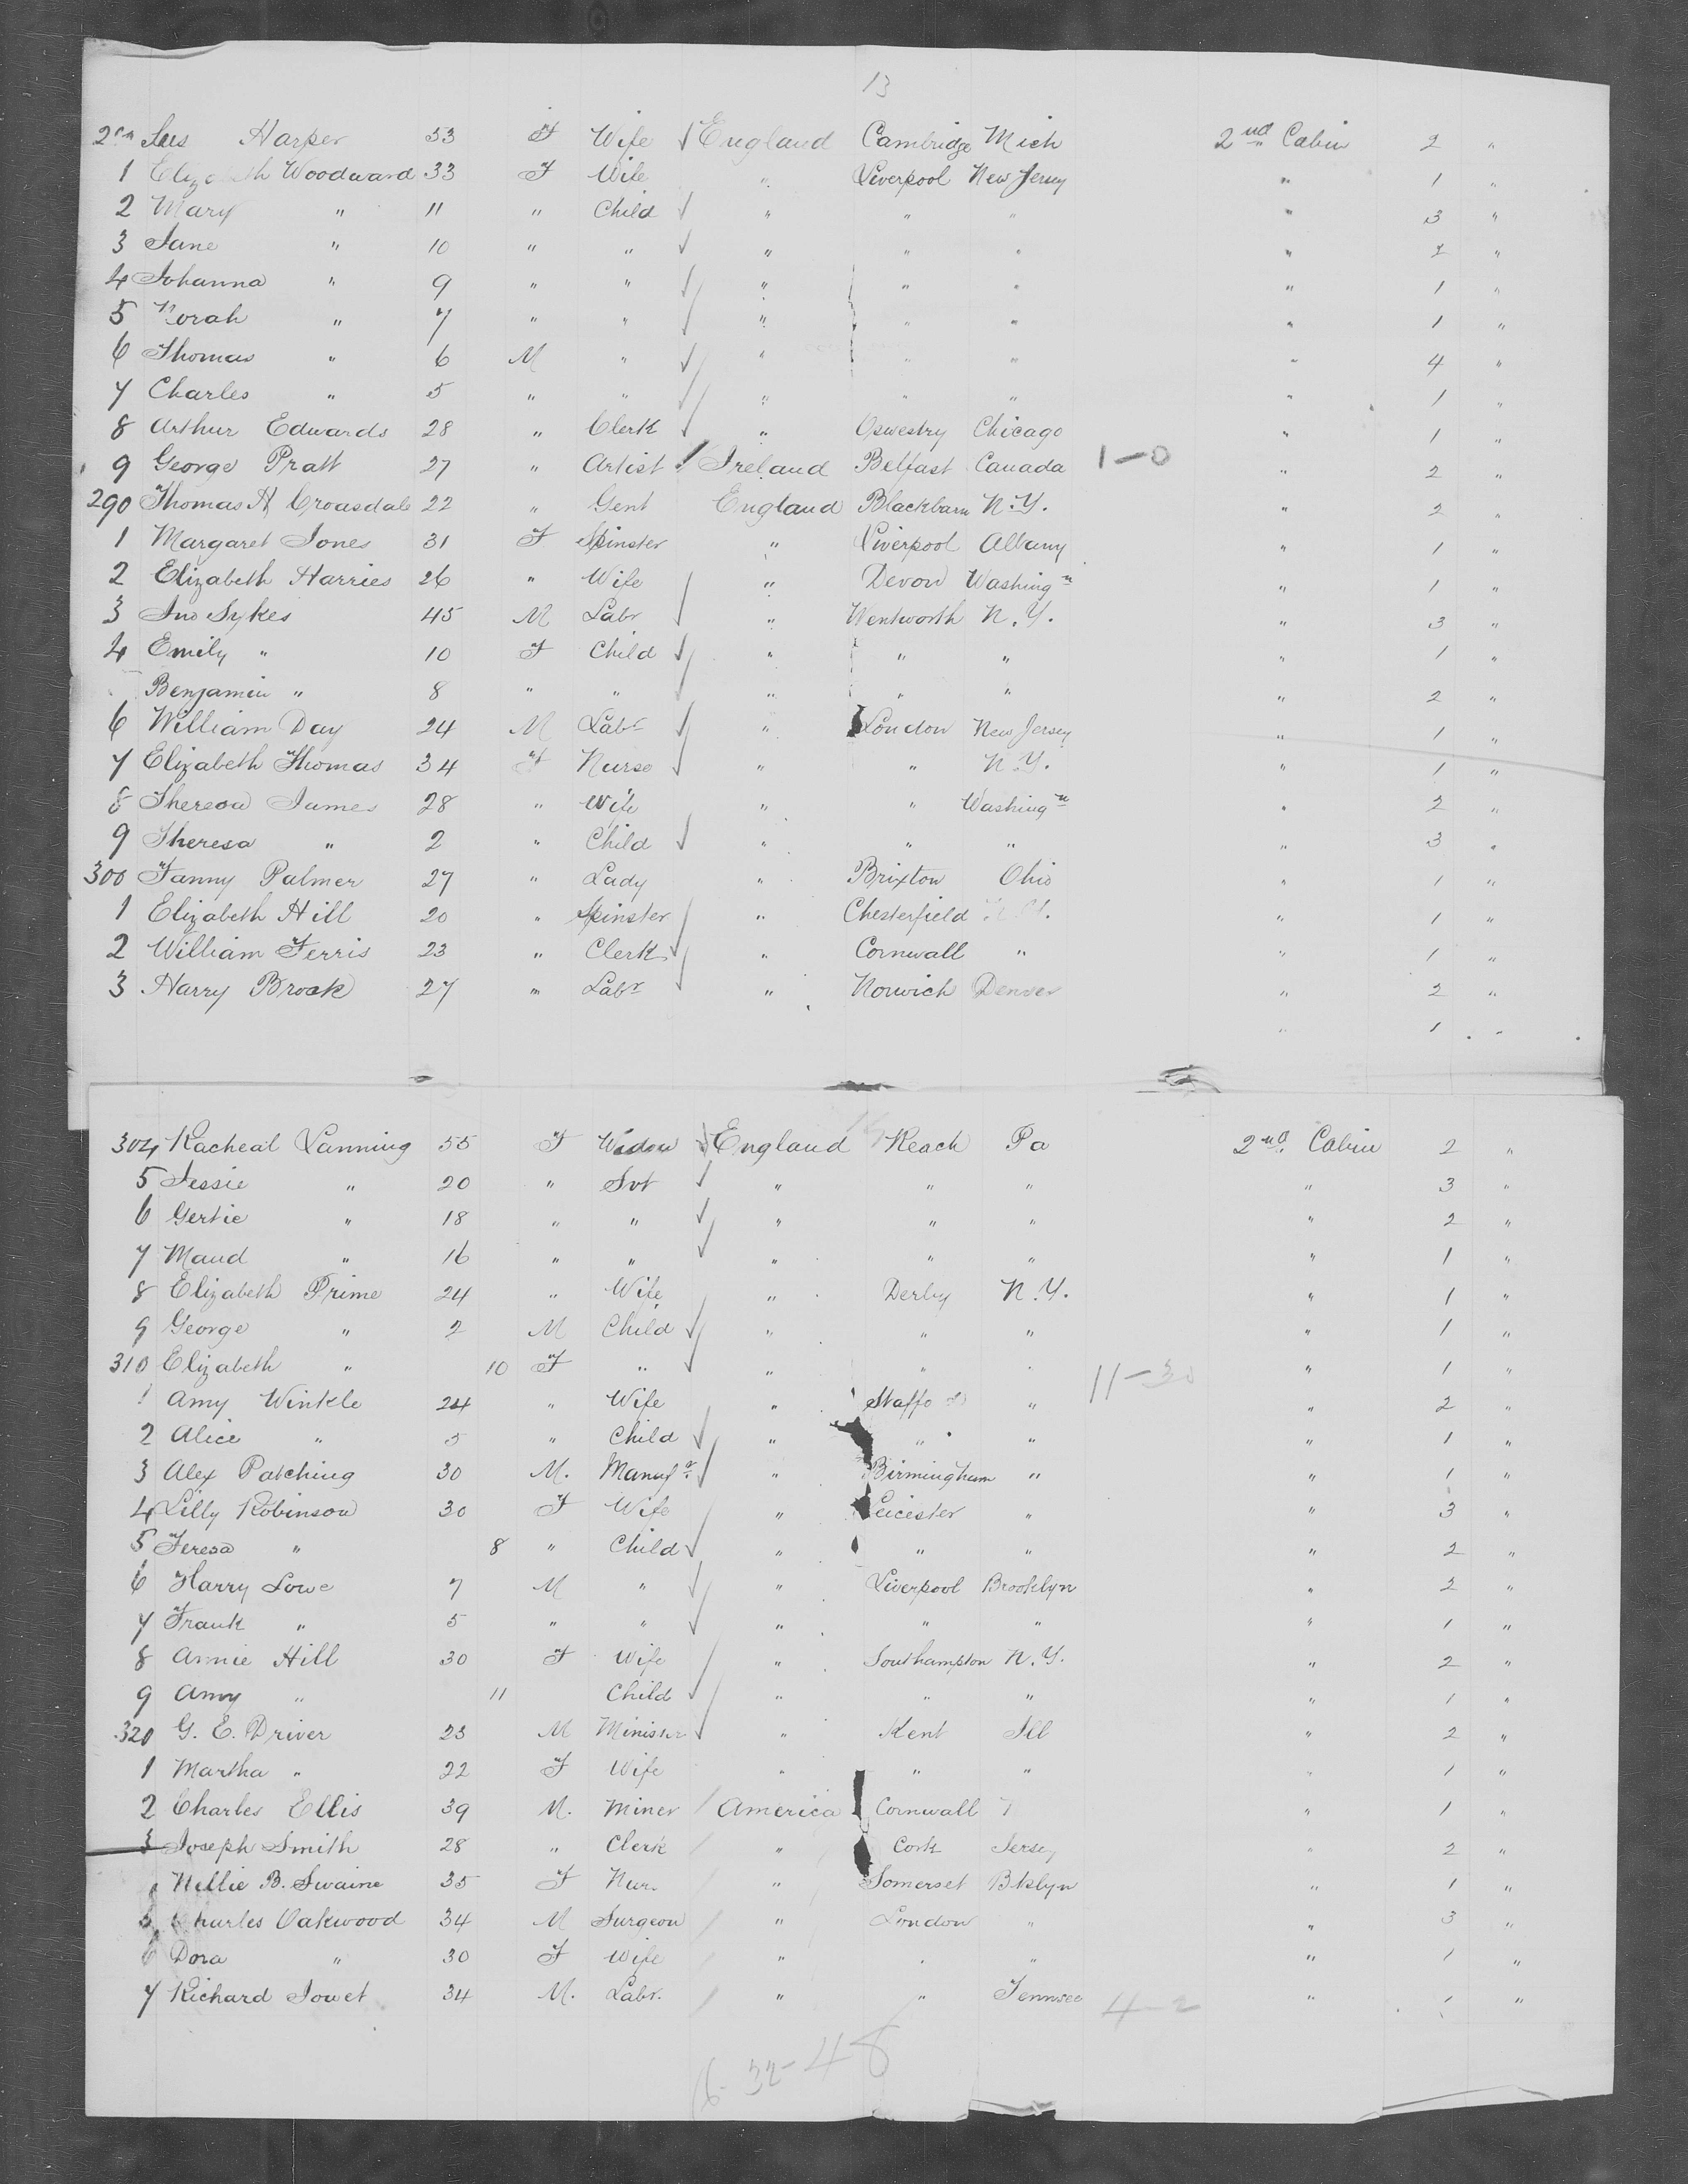 13
Harper 53 F Wife England Cambridge Mich 2nd Cabin 2 "
1 Elizabeth Woodward 33 F Wife " Liverpool New Jersey " 1 "
2 Mary " 11 " Child " " " " 3 "
3 Jane " 10 " " " " " " 2 "
4 Johanna " 9 " " " " " " 1 "
5 Norah " 7 " " " " " " 1 "
6 Thomas " 6 M " " " " " 4 "
7 Charles " 5 " " " " " " 1 "
8 Arthur Edwards 28 " Clerk " Oswestry Chicago " 1 "
9 George Pratt 27 " Artist Ireland Belfast Canada 1-0 " 2 "
290 Thomas H Croasdale 22 " Gent England Blackburn N.Y. " 2 "
1 Margaret Jones 31 F Spinster " Liverpool Albany " 1 "
2 Elizabeth Harries 26 " Wife " Devon Washingn " 1 "
3 Jno Sykes 45 M Labr " Wentworth N.Y. " 3 "
4 Emily " 10 F Child " " " " 1 "
Benjamin " 8 " " " " " " 2 "
6 William Day 24 M Labr " London New Jersey " 1 "
7 Elizabeth Thomas 34 F Nurse " " N.Y. " 1 "
8 Theresa James 28 " Wife " " Washingn " 2 "
9 Theresa " 2 " Child " " " " 3 "
300 Fanny Palmer 27 " Lady " Brixton Ohio " 1 "
1 Elizabeth Hill 20 " Spinster " Chesterfield N.Y. " 1 "
2 William Ferris 23 " Clerk " Cornwall " " 1 "
3 Harry Brook 27 " Labr " Norwich Denver " 2 "
" 1 "
304 Racheal Lanning 55 F Widow England Reach Pa 2nd Cabin 2 "
5 Jessie " 20 " Svt " " " " 3 "
6 Gertie " 18 " " " " " " 2 "
7 Maud " 16 " " " " " " 1 "
8 Elizabeth Prime 24 " Wife " Derby N.Y. " 1 "
9 George " 2 M Child " " " " 1 "
310 Elizabeth " 10 F " " " " 11-30 " 1 "
1 Amy Winkle 24 " Wife " Staffo d " " 2 "
2 Alice " 5 " Child " " " " 1 "
3 Alex Patching 30 M. Manufr " Birmingham " " 1 "
4 Lilly Robinson 30 F Wife " Leicester " " 3 "
5 Teresa " 8 " Child " " " " 2 "
6 Harry Lowe 7 M " " Liverpool Brooklyn " 2 "
7 Frank " 5 " " " " " " 1 "
8 Annie Hill 30 F Wife " Southampton N.Y. " 2 "
9 Amy " 11 Child " " " " 1 "
320 G. E. Driver 23 M Minister " Kent Ill " 2 "
1 Martha " 22 F Wife " " " " 1 "
2 Charles Ellis 39 M. Miner America Cornwall " 1 "
3 Joseph Smith 28 " Clerk " Cork Jersey " 2 "
Nellie B. Swaine 35 F Nur. " Somerset Bklyn " 1 "
5 Charles Oakwood 34 M Surgeon " London " " 3 "
6 Dora " 30 F Wife " " " " 1 "
7 Richard Jowet 34 M. Labr. " " Tennsee 4-2 " 1 "
16-32-48